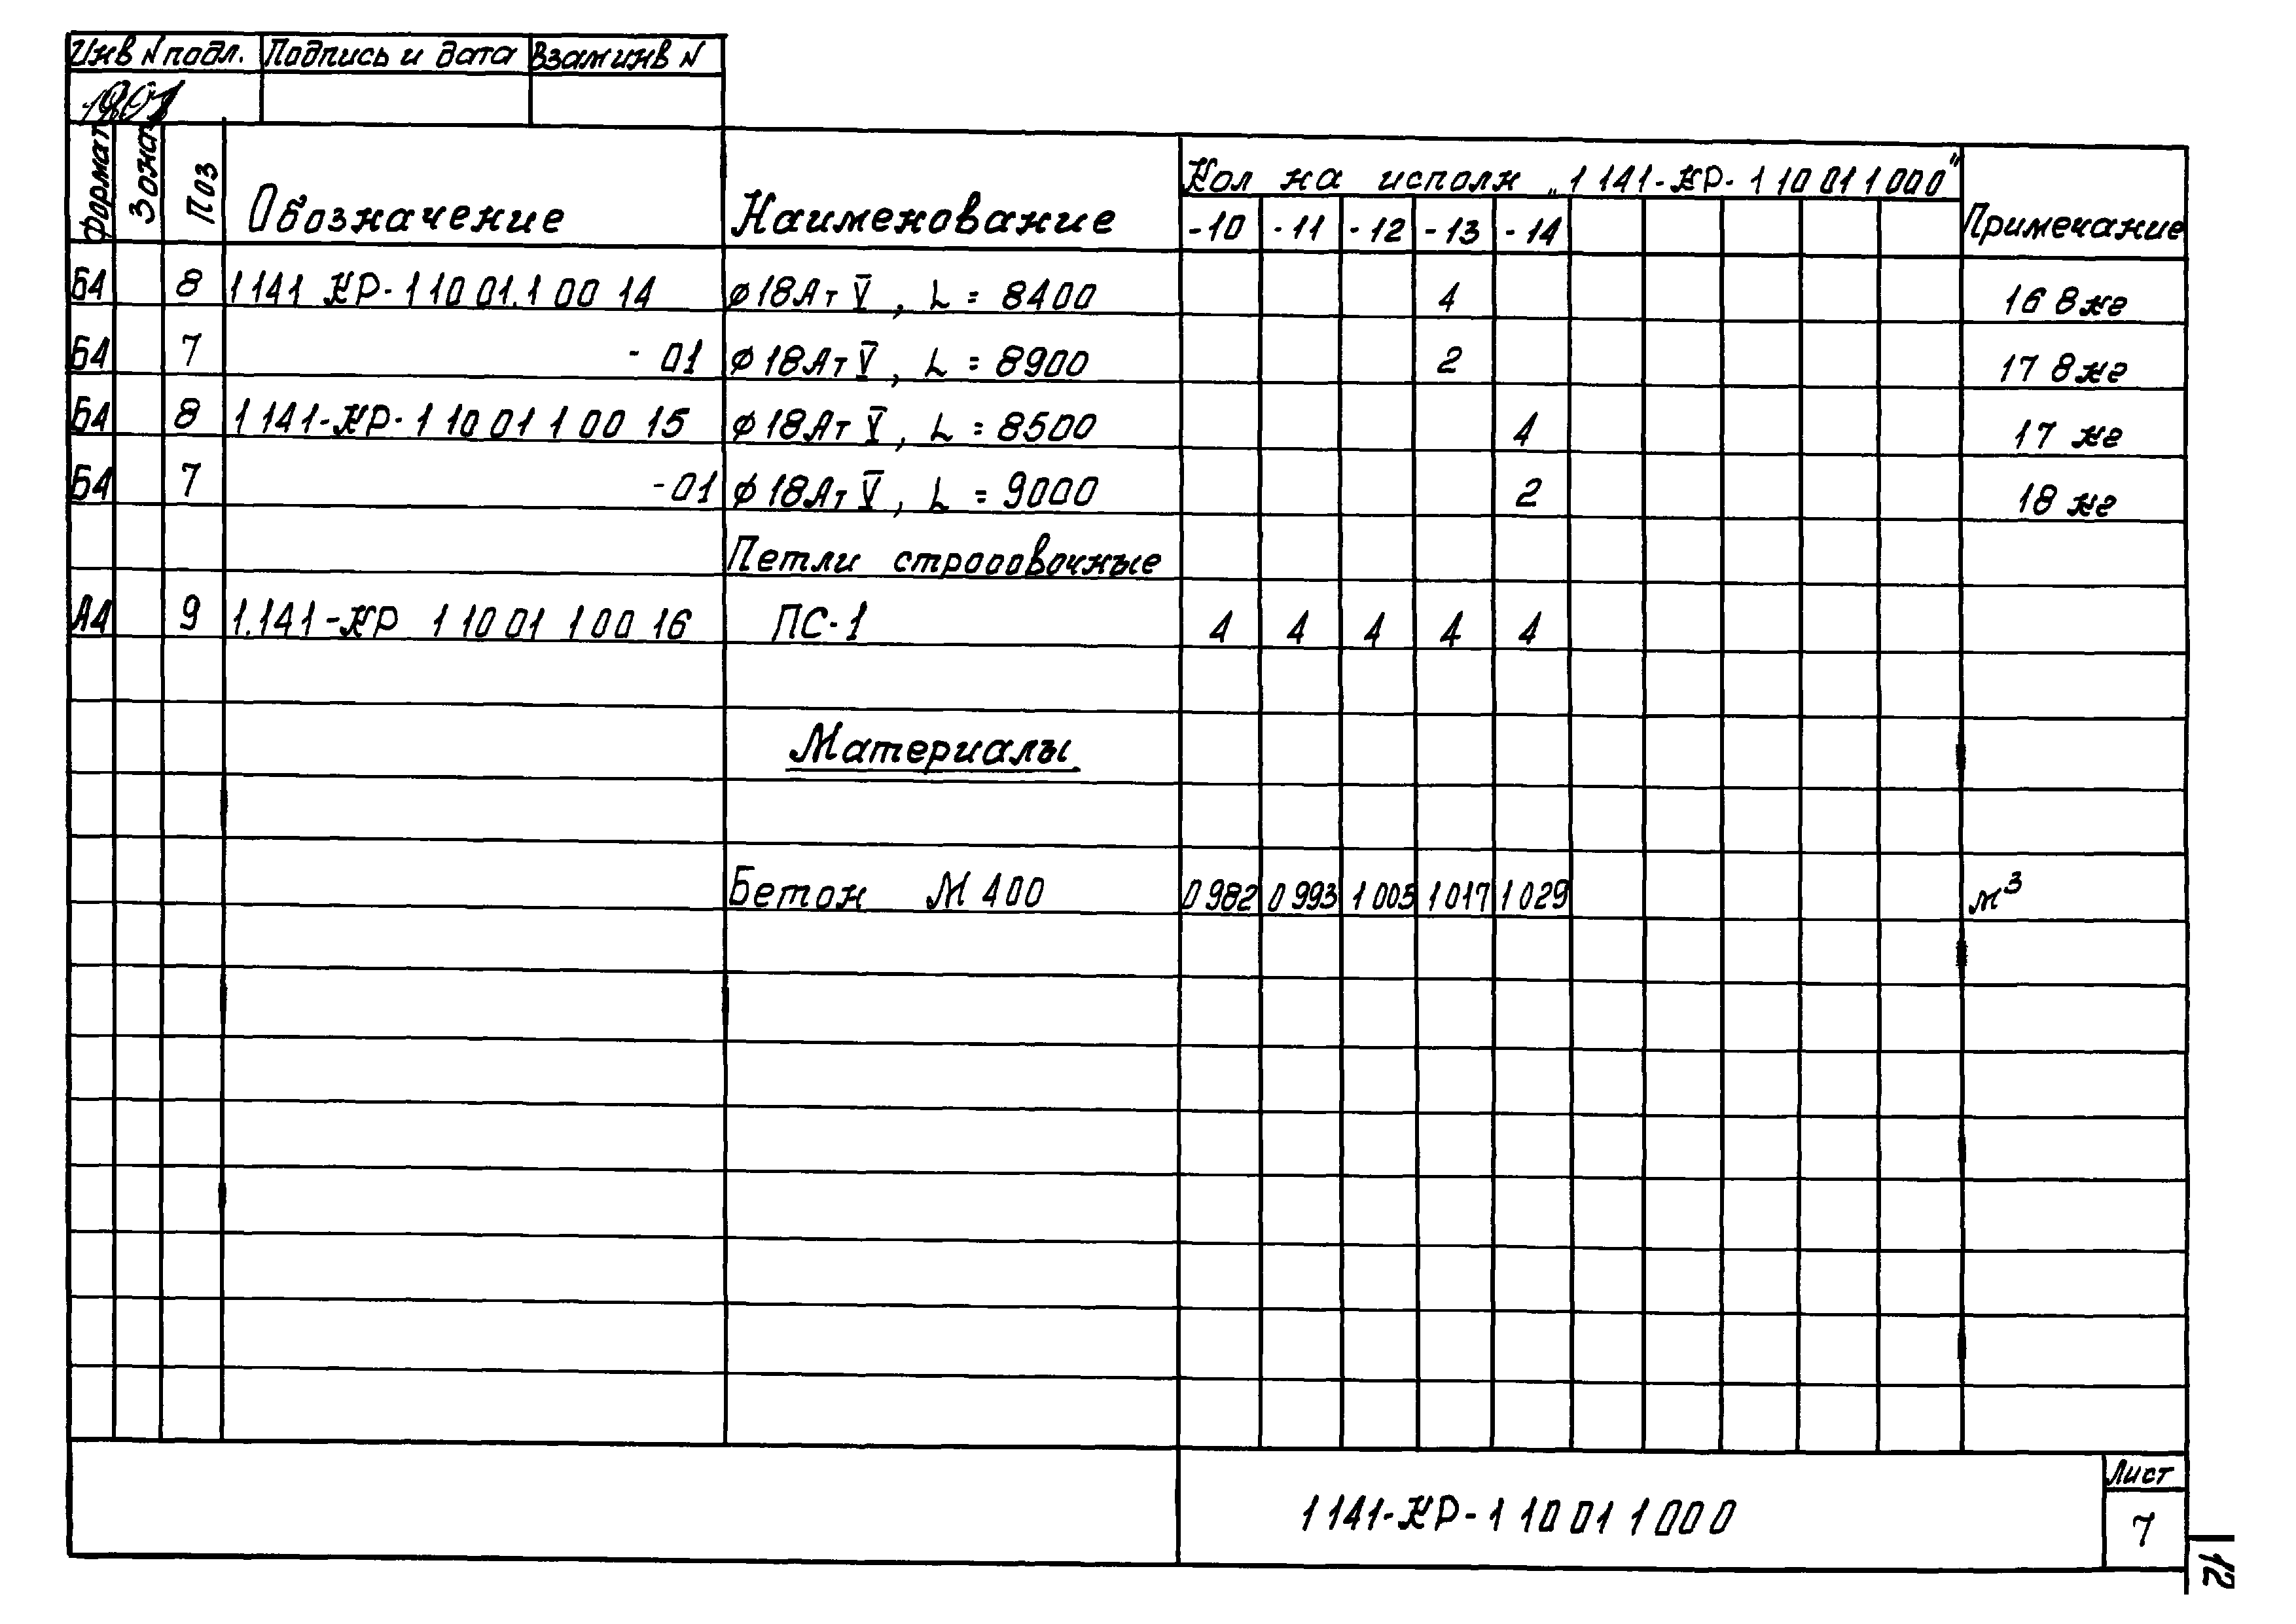 Инв № подл. Подпись и дата Взам инв №
Формат Зона Поз Обозначение Наименование Кол на исполн „1 141-КР-1 10 01 1 000" Примечание
-10 -11 -12 -13 -14
Б4 8 1 141 КР-1 10 01.1 00 14 ø18АтV, L = 8400 4 16 8 кг
Б4 7 -01 ø18АтV, L = 8900 2 17 8 кг
Б4 8 1 141-КР-1 10 01 1 00 15 ø18АтV, L = 8500 4 17 кг
Б4 7 -01 ø18АтV, L = 9000 2 18 кг
Петли строповочные
А4 9 1.141-КР 1 10 01 1 00 16 ПС-1 4 4 4 4 4
Материалы
Бетон М 400 0 982 0 993 1 005 1 017 1 029 м³
1 141-КР-1 10 01 1 000
Лист
7
12